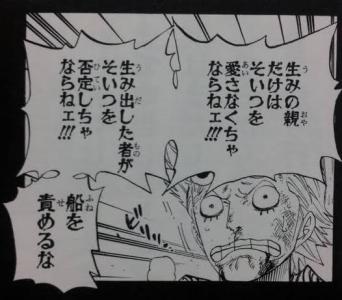 生みの親
だけは
そいつを
愛さなくちゃ
ならねェ!!!
生み出した者が
そいつを
否定しちゃ
ならねェ!!!
船を
責めるな